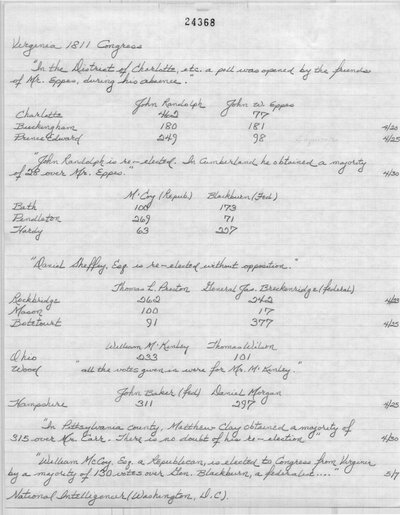 24368
Virginia 1811 Congress
"In the District of Charlotte, etc. a poll was opened by the friends
of Mr. Eppes, during his absence."
John Randolph John W. Eppes
Charlotte 462 77
Buckingham 180 181 4/20
Prince Edward 249 98 4/25
"John Randolph is re-elected. In Cumberland he obtained a majority
of 28 over Mr. Eppes." 4/30
McCoy (Repub.) Blackburn (Fed)
Bath 100 173
Pendleton 269 71
Hardy 63 227
"Daniel Sheffey, Esq. is re-elected without opposition."
Thomas L. Preston General Jas. Breckenridge (federal)
Rockbridge 262 242
Mason 100 17
Botetourt 91 377 4/25
William McKinley Thomas Wilson
Ohio 233 101
Wood "all the votes given in were for Mr. McKinley"
John Baker (fed) Daniel Morgan
Hampshire 311 297 4/25
"In Pittsylvania county, Matthew Clay obtained a majority of
315 over Mr. Carr. There is no doubt of his re-election" 4/30
"William McCoy, Esq. a Republican, is elected to Congress from Virginia
by a majority of 130 votes over Gen. Blackburn, a federalist.... 5/7
National Intelligencer (Washington, D.C.).